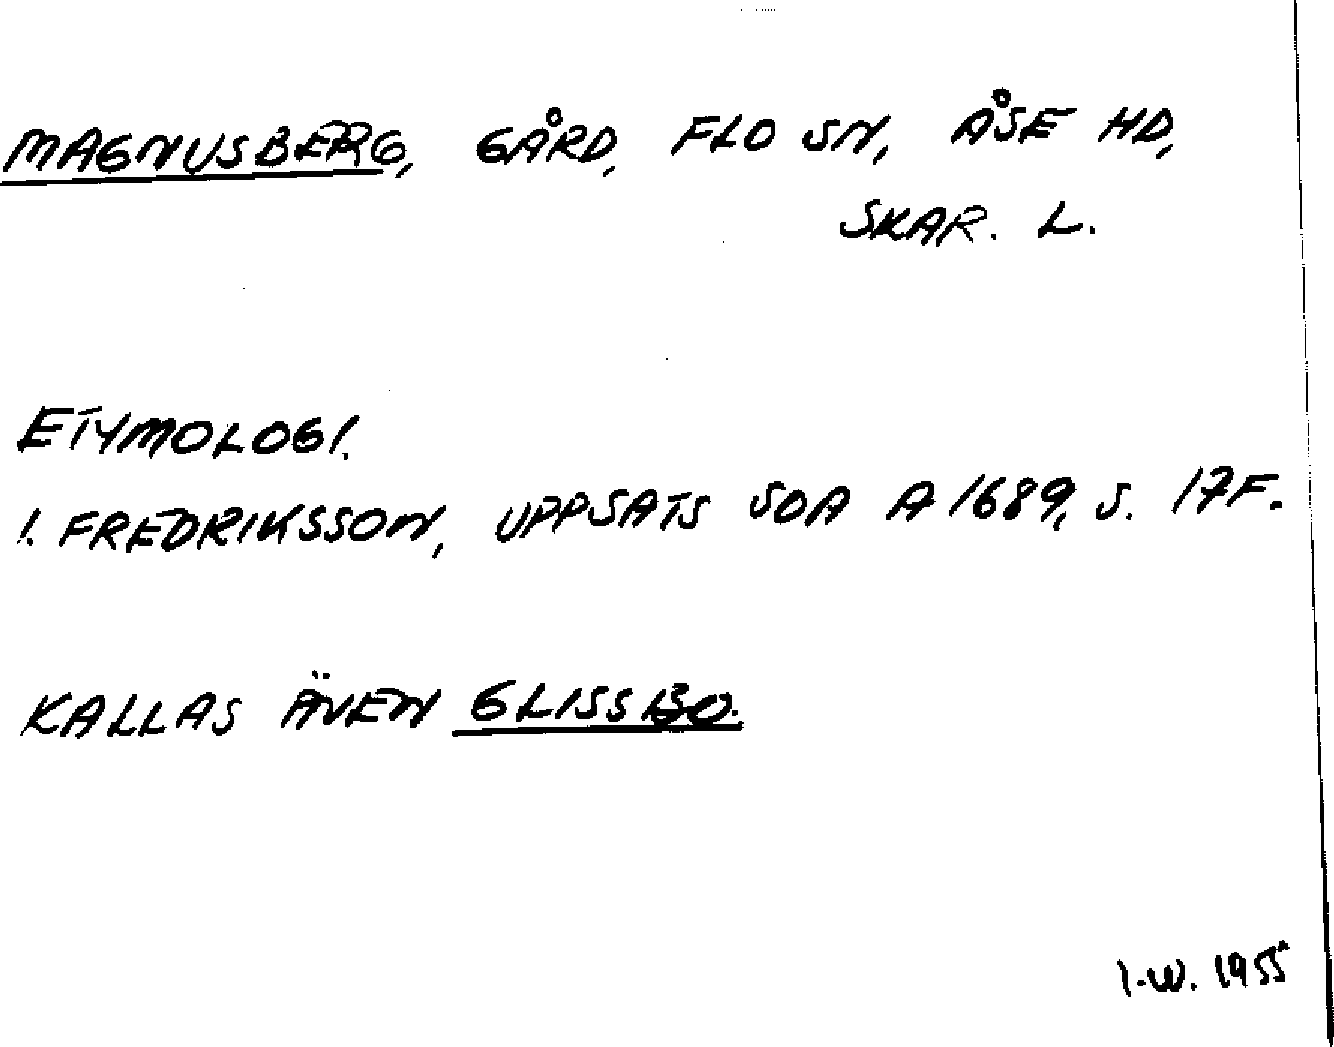 MAGNUSBERG, GÅRD, FLO SN, ÅSE HD,
SKAR. L.
ETYMOLOGI.
I. FREDRIKSSON, UPPSATS SOA A 1689, S. 17F.
KALLAS ÄVEN GLISSBO.
I.W. 1955